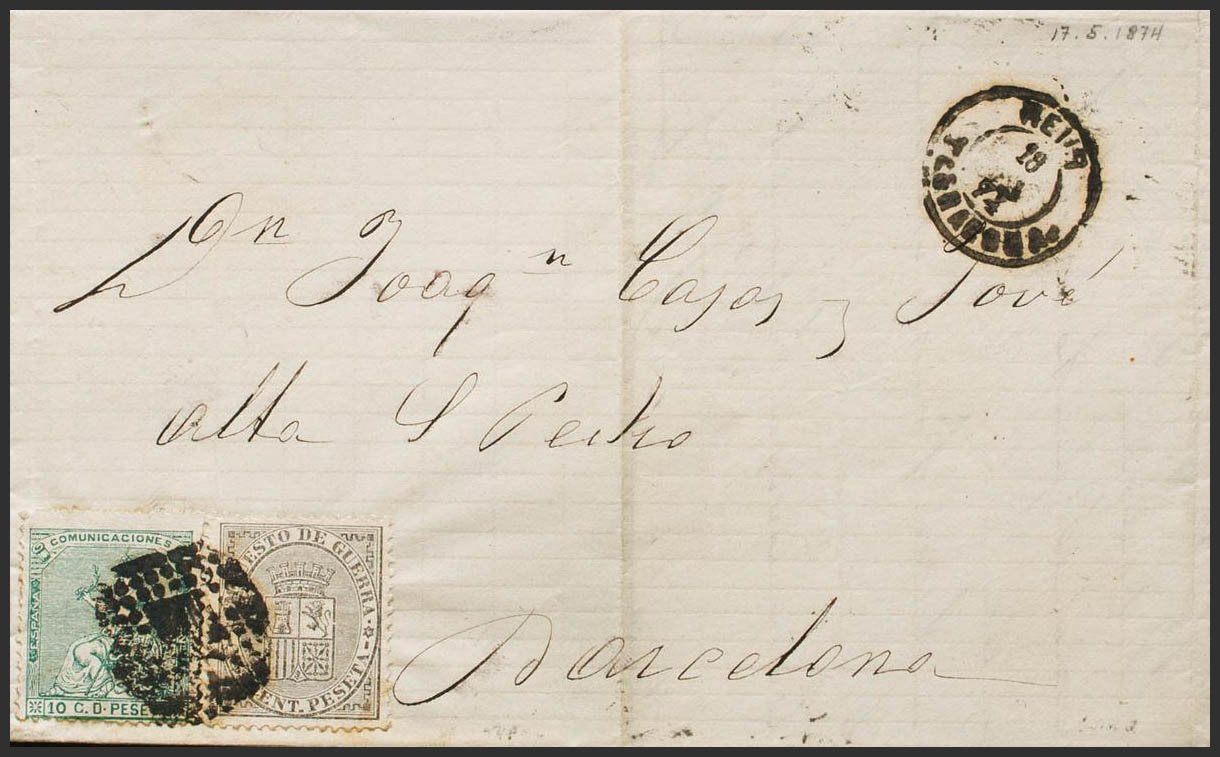 17.5.1874
REUS
18
74
Dn Joaqn Casas y Jové
alta S Pedro
COMUNICACIONES
ESPAÑA
10 C. D. PESE
ESTO DE GUERRA
ENT. PESETA
Barcelona